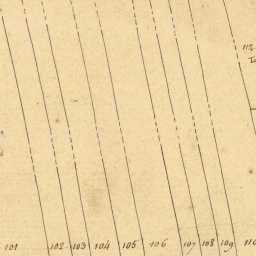 112
101 102 103 104 105 106 107 108 109 110